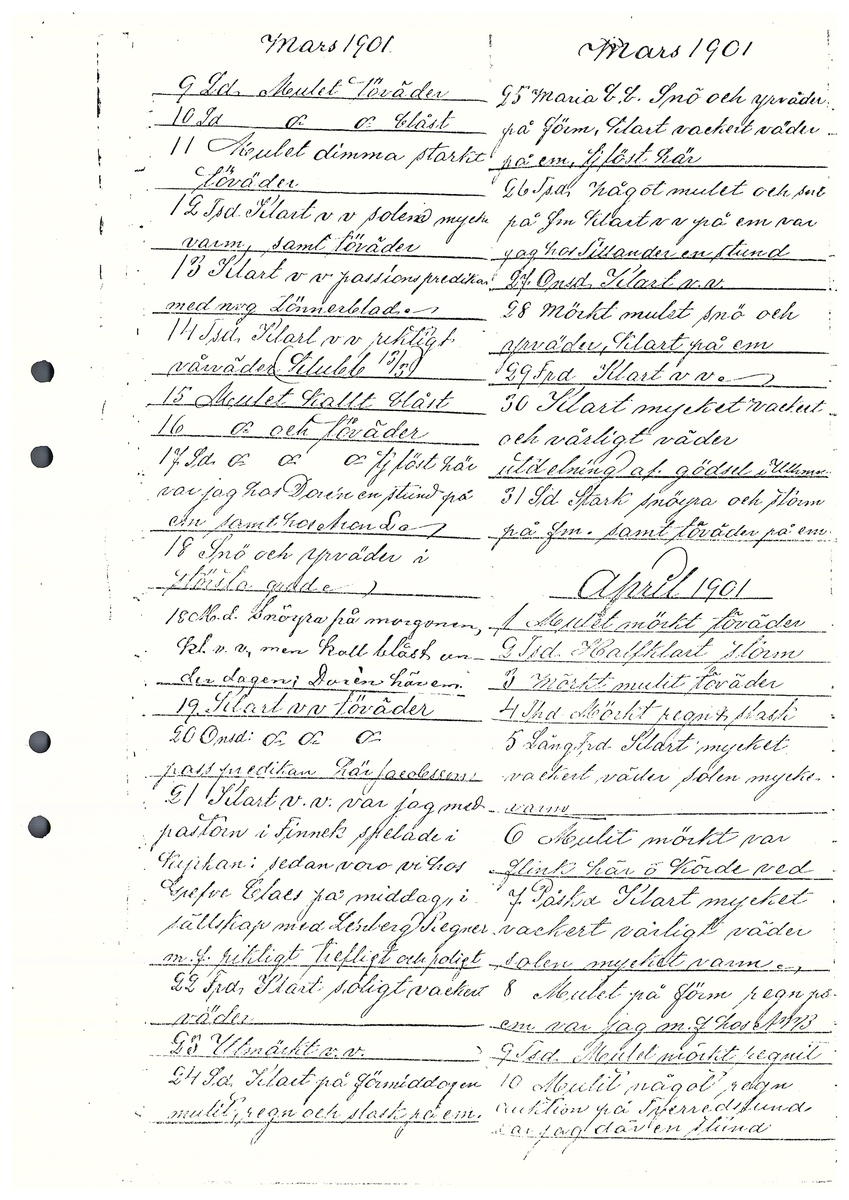 Mars 1901
9 Ld. Mulet töväder
10 Sd " " blåst
11 Mulet dimma starkt
töväder
12 Tsd. Klart v v solen mycke
varm, samt töväder
13 Klart v v passionspredikan
med Lönnerblad.
14 Tsd. Klart v v riktigt
vårväder (Klubb 13/3)
15 Mulet kallt blåst
16 " och töväder
17 Sd. " " " Ej föst här
var jag hos Doren en stund på
em samt hos
18 Snö och yrväder i
största grade
18 M.d. Snöyra på morgonen,
kl. v. v, men kall blåst un-
der dagen; Doren här em.
19. Klart v v töväder
20 Onsd: " " "
passpredikan här Jacobsson
21 Klart v. v. var jag med
pastorn i Finnek spelade i
kyrkan: sedan voro vi hos
Grefve Claes på middag, i
sällskap med Regner
m. f. riktigt trefligt och roligt
22 Frd. Klart soligt vackert
väder
23 Utmärkt v. v.
24 Sd. Klart på förmiddagen
mulit, regn och slask på em.
Mars 1901
25 Maria b, b. Snö och yrväder
på förm, klart vackert väder
på em, Ej föst här
26 Tsd. något mulet och snö
på fm klart v v på em var
jag hos Tillander en stund
27. Onsd. Klart v. v.
28 Mörkt mulet snö och
yrväder, klart på em
29 Frd Klart v v.
30 Klart mycket vackert
och vårligt väder
utdelning af gödsel i
31 Sd Stark snöyra och storm
på fm. samt töväder på em
April 1901
1 Mulet mörkt töväder
2 Tsd. Halfklart storm
3 Mörkt mulit töväder
4 Thd Mörkt regn & slask
5 Långfrd. Klart, mycket
vackert väder solen mycke-
varm
6 Mulit mörkt var
flink här o körde ved
7 Påskd Klart mycket
vackert vårligt väder
solen mycket varm
8 Mulet på förm regn på
em var jag m. f hos
9 Tsd. Mulet mörkt regnit
10 Mulit något regn
auktion på Tverredssund
var jag där en stund